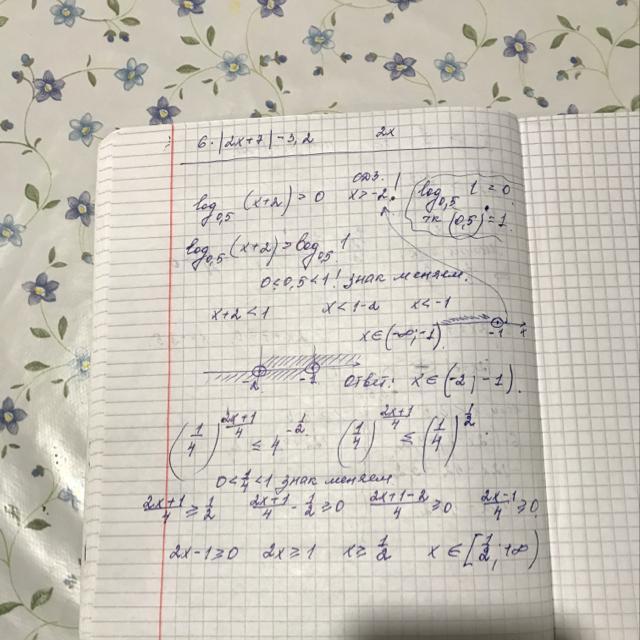 6·|2x+7|-3,2 2x
log₀,₅ (x+2) > 0 ОДЗ. x > -2! log₀,₅ 1 = 0
тк (0,5)⁰ = 1.
log₀,₅ (x+2) > log₀,₅ 1
0<0,5<1! знак меняем.
x+2 < 1 x < 1-2 x < -1
x ∈ (-∞; -1) -1
-2 -1 Ответ: x ∈ (-2; -1).
(1/4)^((2x+1)/4) ≤ 4^(-1/2) (1/4)^((2x+1)/4) ≤ (1/4)^(1/2)
0<1/4<1 знак меняем
(2x+1)/4 ≥ 1/2 (2x+1)/4 - 1/2 ≥ 0 (2x+1-2)/4 ≥ 0 (2x-1)/4 ≥ 0
2x-1 ≥ 0 2x ≥ 1 x ≥ 1/2 x ∈ [1/2; +∞)